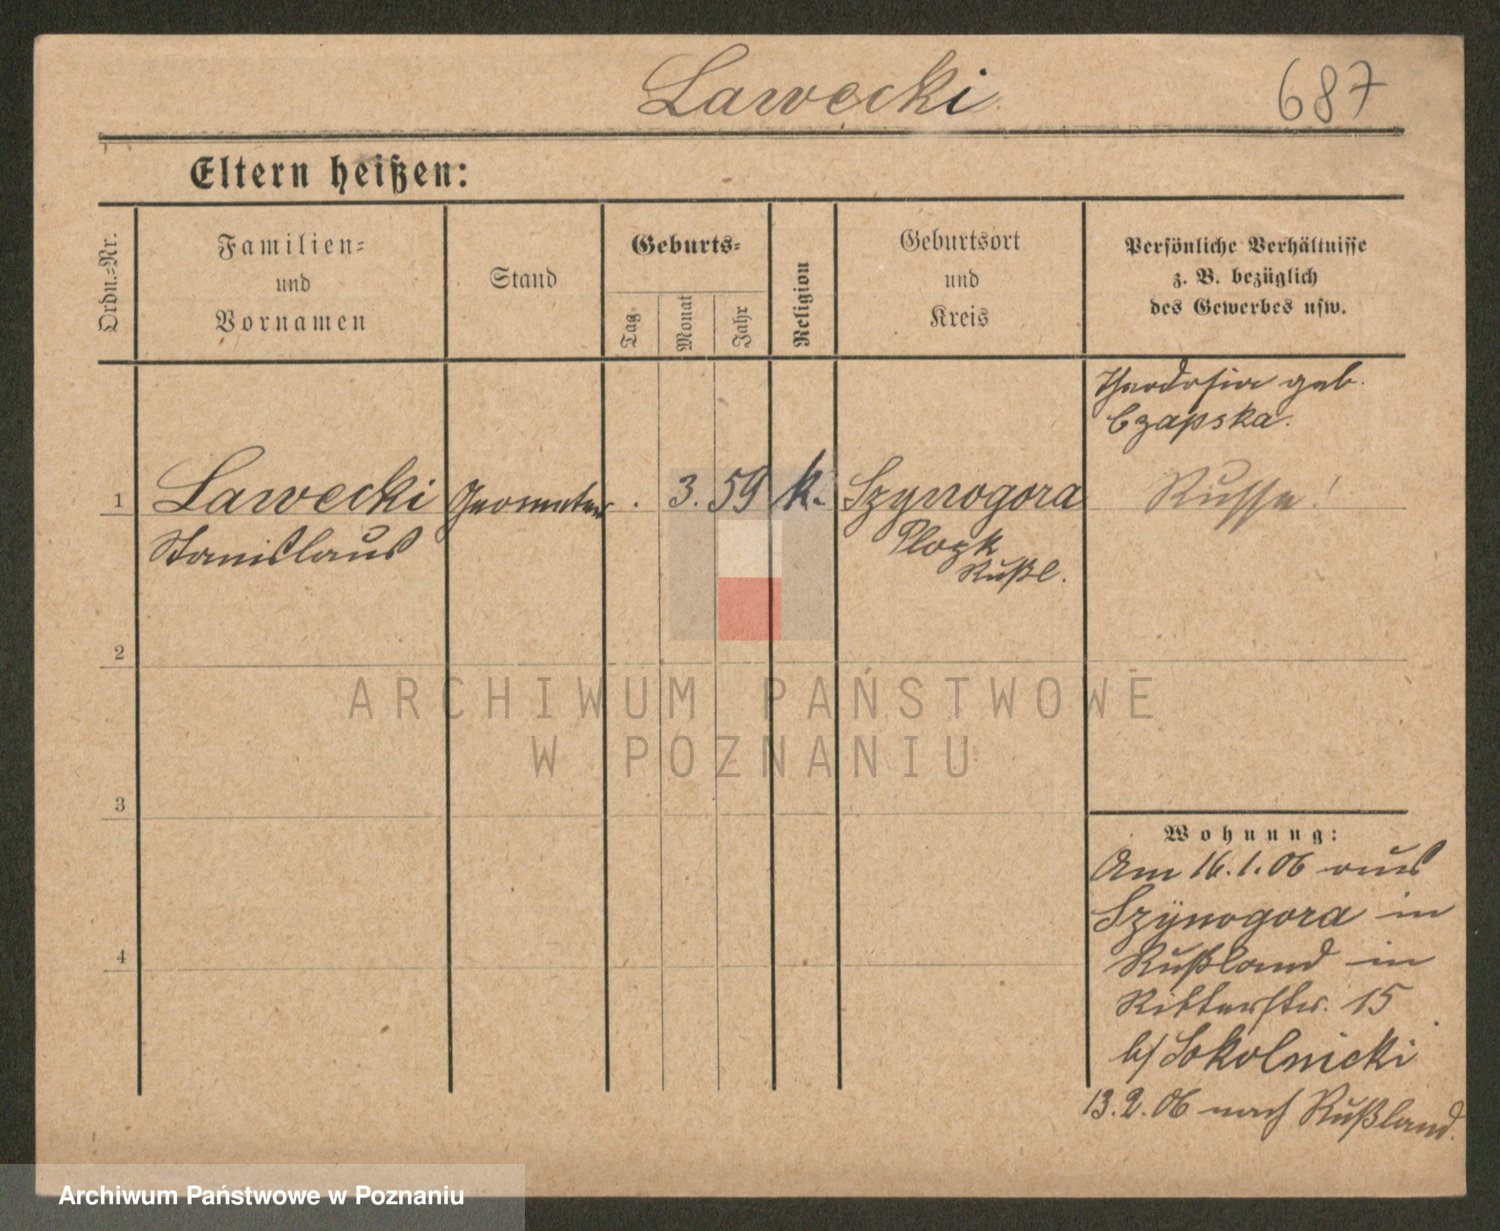 Lawecki
687
Eltern heißen:
Ordn.-Nr.
Familien-
und
Vornamen
Stand
Geburts-
Tag
Monat
Jahr
Religion
Geburtsort
und
Kreis
Persönliche Verhältnisse
z. B. bezüglich
des Gewerbes usw.
Theodosia geb.
Czapska.
1 Lawecki Geometer . 3. 59 k. Szynogora Russe!
Stanislaus Plozk
Rußl.
2
3
4
Wohnung:
Am 16.1.06 aus
Szÿnogora in
Rußland in
Ritterstr. 15
b/ Sokolnicki
13.2.06 nach Rußland.
ARCHIWUM PAŃSTWOWE
W POZNANIU
Archiwum Państwowe w Poznaniu